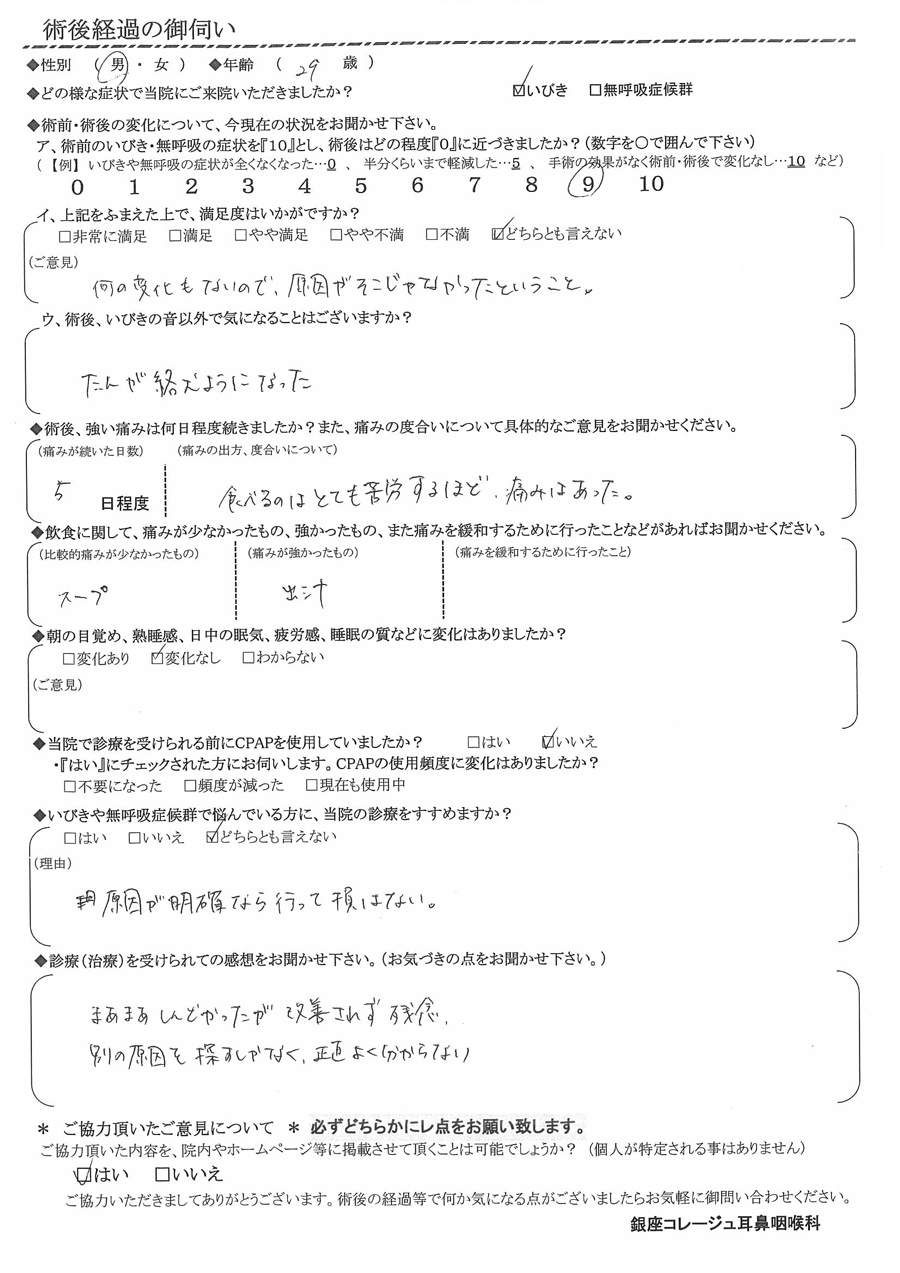 術後経過の御伺い
◆性別 ( 男 ・ 女 ) ◆年齢 ( 29 歳 )
◆どの様な症状で当院にご来院いただきましたか? ☑いびき □無呼吸症候群
◆術前・術後の変化について、今現在の状況をお聞かせ下さい。
ア、術前のいびき・無呼吸の症状を『10』とし、術後はどの程度『0』に近づきましたか?(数字を〇で囲んで下さい)
(【例】いびきや無呼吸の症状が全くなくなった…0 、 半分くらいまで軽減した…5 、 手術の効果がなく術前・術後で変化なし…10 など)
0 1 2 3 4 5 6 7 8 9 10
イ、上記をふまえた上で、満足度はいかがですか?
□非常に満足 □満足 □やや満足 □やや不満 □不満 ☑どちらとも言えない
(ご意見)
何の変化もないので、原因がそこじゃなかったということ。
ウ、術後、いびきの音以外で気になることはございますか?
たんが絡むようになった
◆術後、強い痛みは何日程度続きましたか?また、痛みの度合いについて具体的なご意見をお聞かせください。
(痛みが続いた日数) (痛みの出方、度合いについて)
5 日程度 食べるのはとても苦労するほど、痛みはあった。
◆飲食に関して、痛みが少なかったもの、強かったもの、また痛みを緩和するために行ったことなどがあればお聞かせください。
(比較的痛みが少なかったもの) (痛みが強かったもの) (痛みを緩和するために行ったこと)
スープ 出汁
◆朝の目覚め、熟睡感、日中の眠気、疲労感、睡眠の質などに変化はありましたか?
□変化あり ☑変化なし □わからない
(ご意見)
◆当院で診療を受けられる前にCPAPを使用していましたか? □はい ☑いいえ
・『はい』にチェックされた方にお伺いします。CPAPの使用頻度に変化はありましたか?
□不要になった □頻度が減った □現在も使用中
◆いびきや無呼吸症候群で悩んでいる方に、当院の診療をすすめますか?
□はい □いいえ ☑どちらとも言えない
(理由)
原因が明確なら行って損はない。
◆診療(治療)を受けられての感想をお聞かせ下さい。(お気づきの点をお聞かせ下さい。)
まあまあしんどかったが改善されず残念、
別の原因を探すしかなく、正直よく分からない
＊ ご協力頂いたご意見について ＊ 必ずどちらかにレ点をお願い致します。
ご協力頂いた内容を、院内やホームページ等に掲載させて頂くことは可能でしょうか? (個人が特定される事はありません)
☑はい □いいえ
ご協力いただきましてありがとうございます。術後の経過等で何か気になる点がございましたらお気軽に御問い合わせください。
銀座コレージュ耳鼻咽喉科